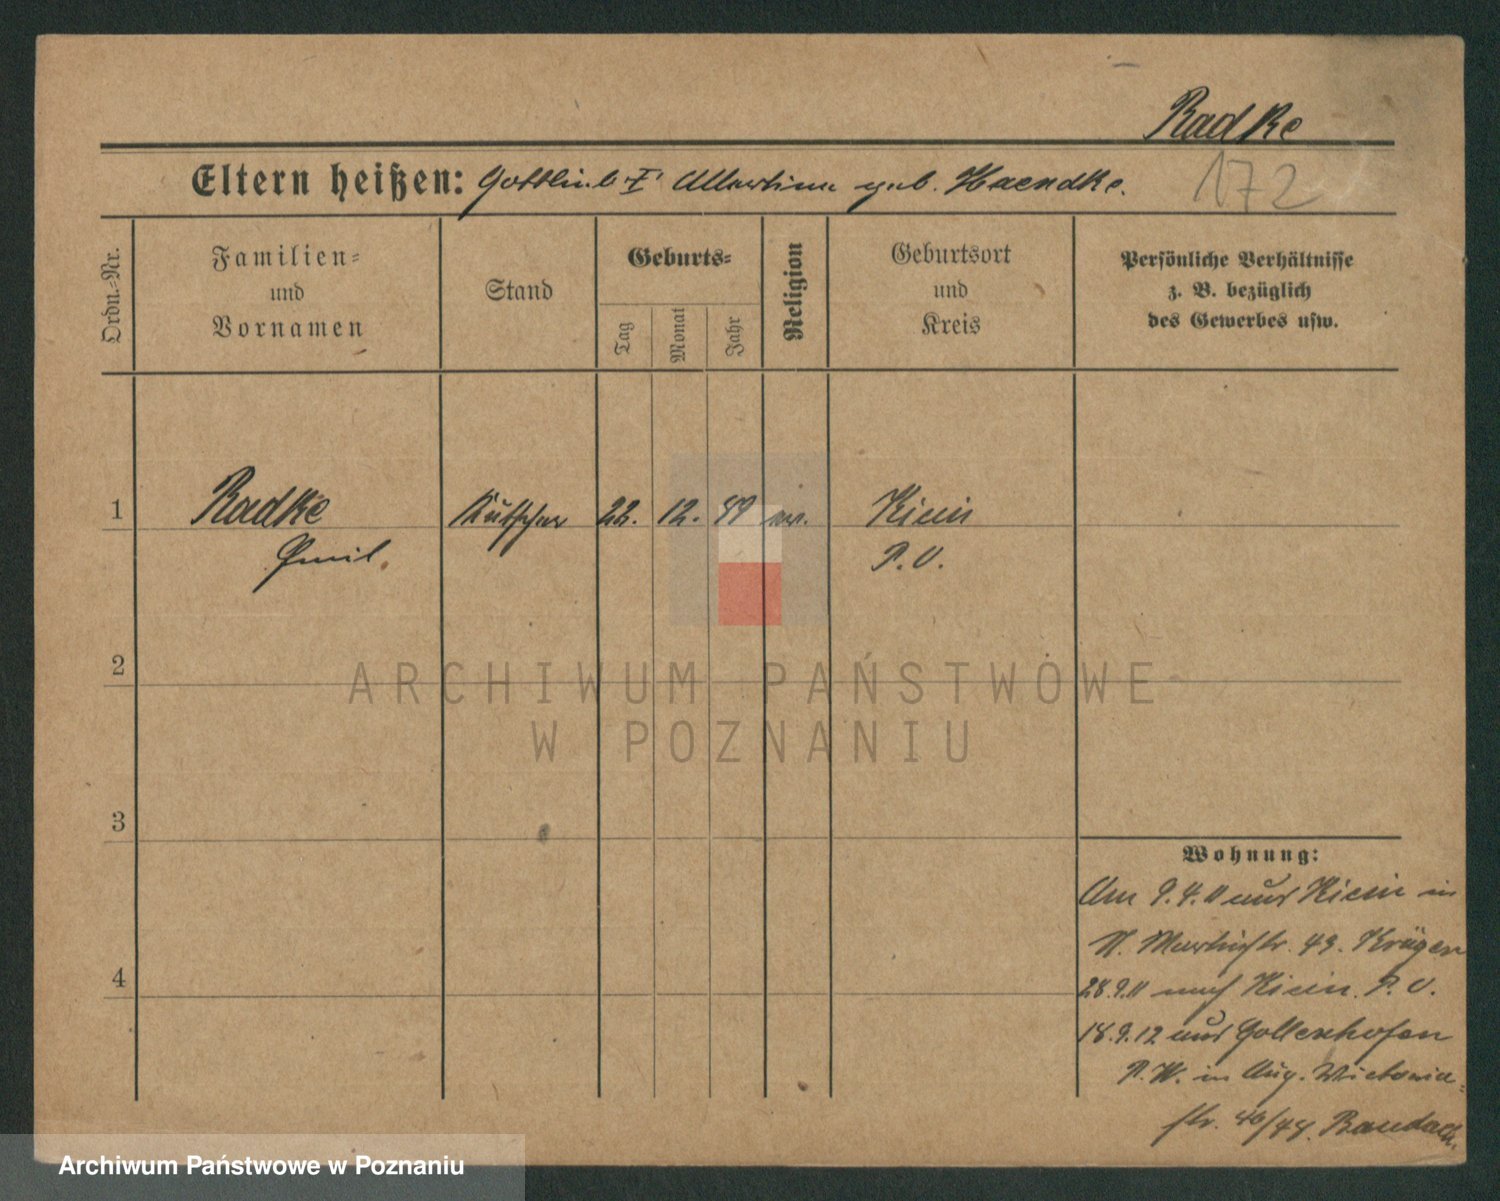 Radke
Eltern heißen: Gottlieb geb. Haendke.
172
Ordn.-Nr.
Familien-
und
Vornamen
Stand
Geburts-
Tag
Monat
Jahr
Religion
Geburtsort
und
Kreis
Persönliche Verhältnisse
z. B. bezüglich
des Gewerbes usw.
1
Radke
Emil
Kutscher
22.
12.
ev.
Kicin
P. O.
2
3
4
Wohnung:
Am 9.4.11 aus Kicin in
St. Martinstr. 43. Krüger
28.9.11 nach Kicin. P. O.
18.9.12 aus Gollenhofen
P. W. in Aug. Victoria-
str.
ARCHIWUM PAŃSTWOWE
W POZNANIU
Archiwum Państwowe w Poznaniu